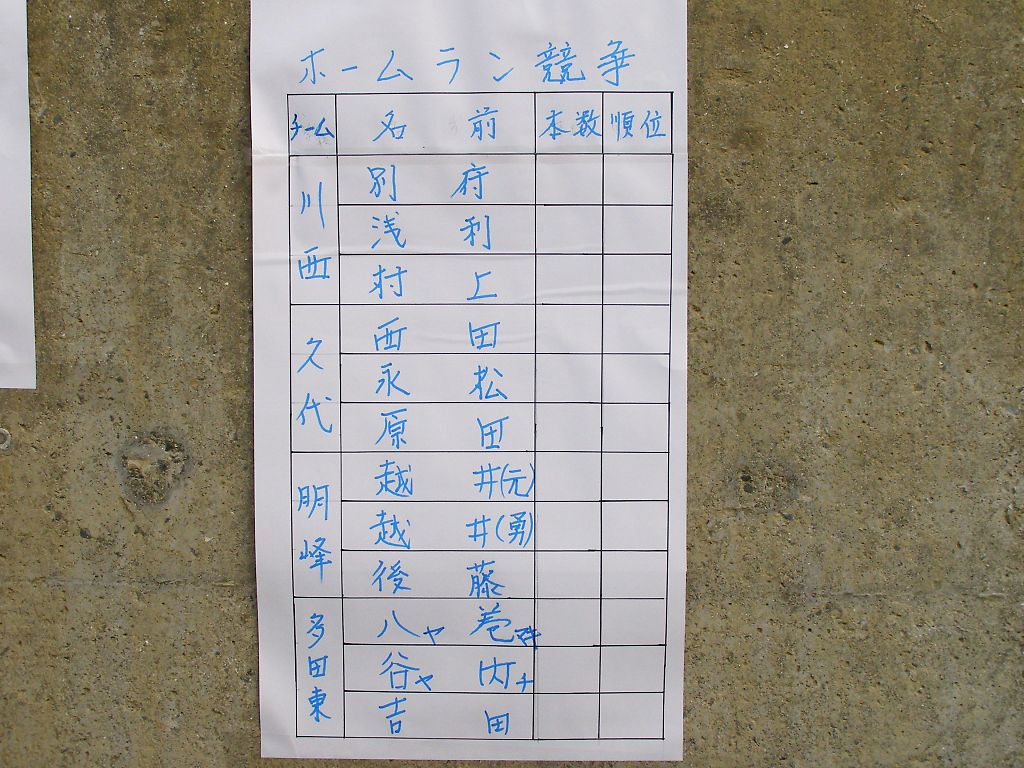 ホームラン競争
チーム 名前 本数 順位
川西 別府
浅利
村上
久代 西田
永松
原田
明峰 越井(元)
越井(勇)
後藤
多田東 八ヤ巻マキ
谷ヤ内チ
吉田